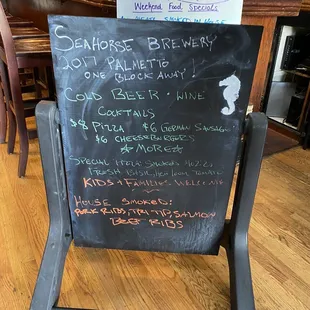 Weekend Food Specials
SMOKED IN
SEAHORSE BREWERY
2017 PALMETTO
ONE BLOCK AWAY!
COLD BEER • WINE
COCKTAILS
$8 PIZZA $6 GERMAN SAUSAGE
$6 CHEESEBURGERS
★MORE★
SPECIAL PIZZA: SMOKED MOZZ,
FRESH BASIL, HEIRLOOM TOMATO
KIDS + FAMILIES WELCOME
HOUSE SMOKED:
PORK RIBS, TRI TIP, SALMON
BEEF RIBS